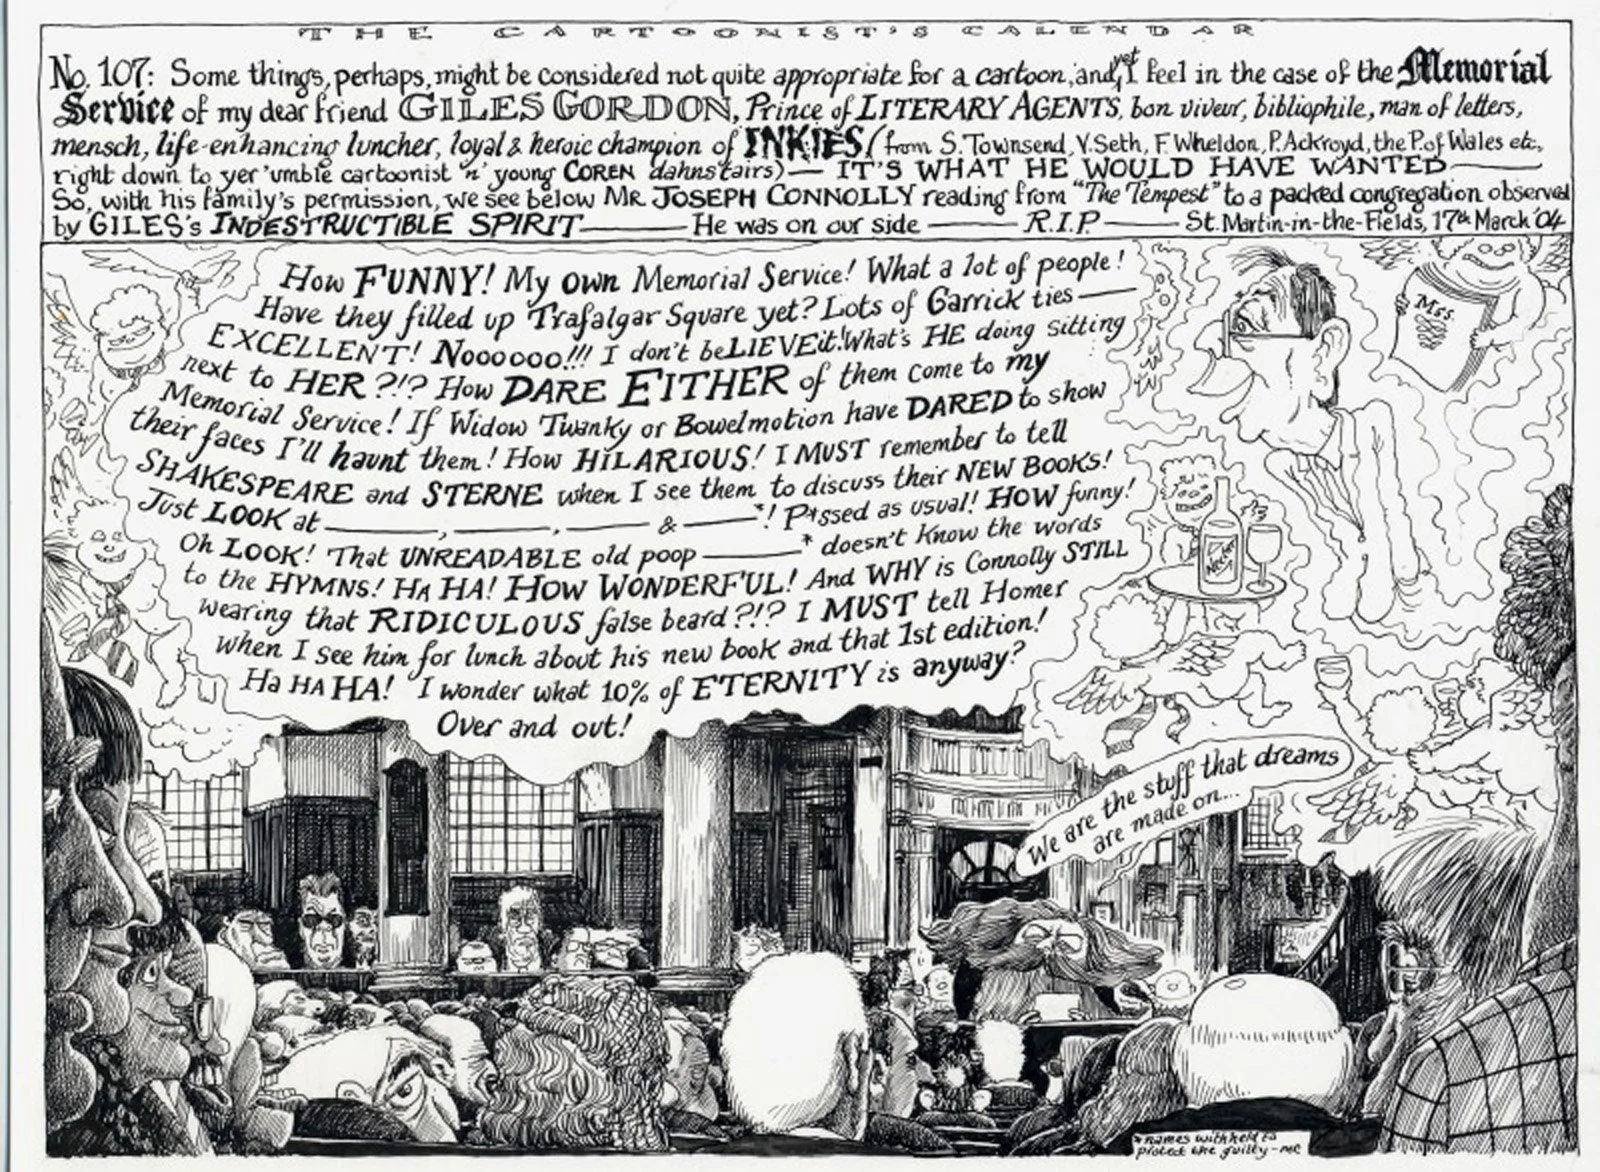 THE CARTOONIST'S CALENDAR
No. 107: Some things, perhaps, might be considered not quite appropriate for a cartoon, and yet I feel in the case of the Memorial
Service of my dear friend GILES GORDON, Prince of LITERARY AGENTS, bon viveur, bibliophile, man of letters,
mensch, life-enhancing luncher, loyal & heroic champion of INKIES (from S. Townsend, V. Seth, F. Wheldon, P. Ackroyd, the P. of Wales etc.,
right down to yer 'umble cartoonist 'n' young COREN dahnstairs) — IT'S WHAT HE WOULD HAVE WANTED —
So, with his family's permission, we see below MR JOSEPH CONNOLLY reading from "The Tempest" to a packed congregation observed
by GILES's INDESTRUCTIBLE SPIRIT — He was on our side — R.I.P. — St. Martin-in-the-Fields, 17th March '04
How FUNNY! My own Memorial Service! What a lot of people!
Have they filled up Trafalgar Square yet? Lots of Garrick ties —
EXCELLENT! Noooooo!!! I don't beLIEVE it! What's HE doing sitting
next to HER?!? How DARE EITHER of them come to my
Memorial Service! If Widow Twanky or Bowelmotion have DARED to show
their faces I'll haunt them! How HILARIOUS! I MUST remember to tell
SHAKESPEARE and STERNE when I see them to discuss their NEW BOOKS!
Just LOOK at ———, ———, ——— & ———*! P*ssed as usual! HOW funny!
Oh LOOK! That UNREADABLE old poop ———* doesn't know the words
to the HYMNS! HA HA! HOW WONDERFUL! And WHY is Connolly STILL
wearing that RIDICULOUS false beard?!? I MUST tell Homer
when I see him for lunch about his new book and that 1st edition!
Ha HA HA! I wonder what 10% of ETERNITY is anyway?
Over and out!
Mss.
We are the stuff that dreams
are made on...
*names withheld to
protect the guilty - MR